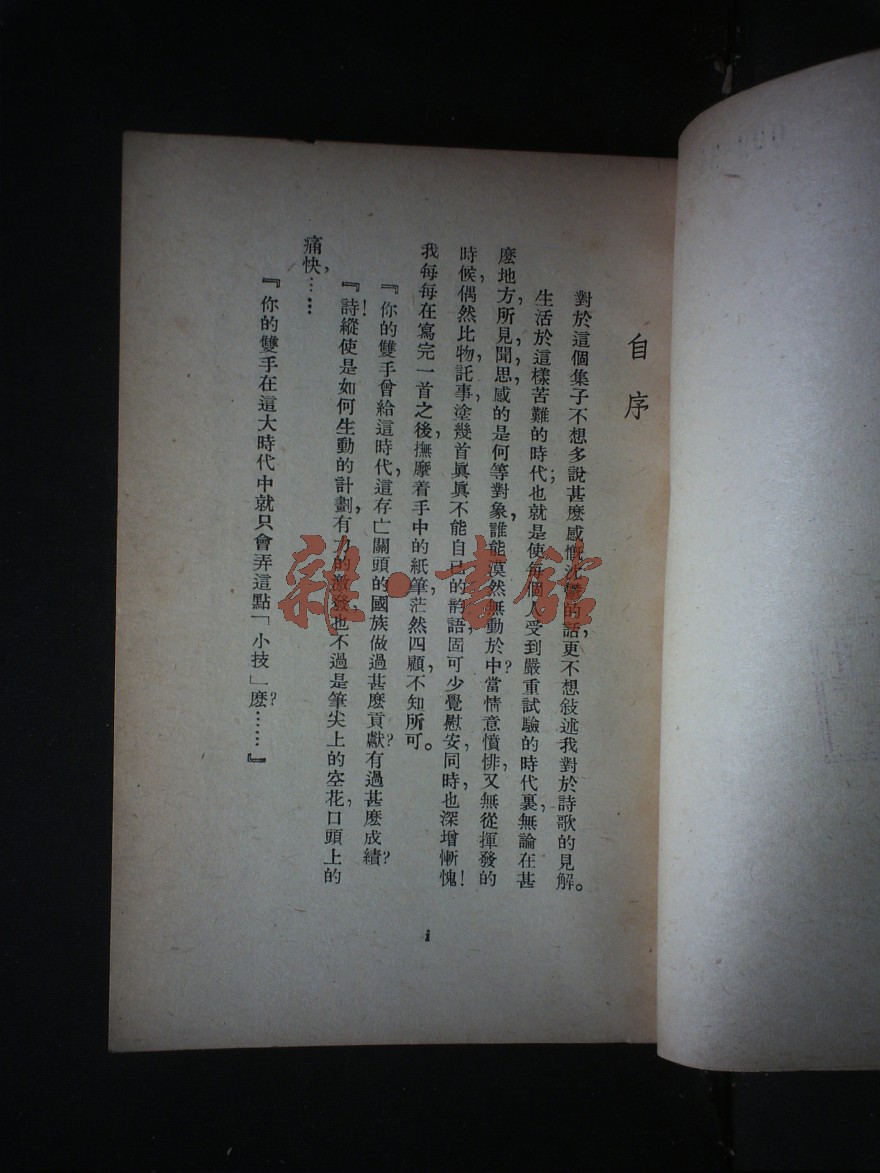 自序
對於這個集子不想多說甚麼感慨沈鬱的話，更不想敍述我對於詩歌的見解。
生活於這樣苦難的時代；也就是使每個人受到嚴重試驗的時代裏，無論在甚
麼地方，所見，聞，思，感的是何等對象，誰能漠然無動於中？當情意憤悱，又無從揮發的
時候，偶然比物託事，塗幾首眞眞不能自已的韵語，固可少覺慰安，同時也深增慚愧！
我每每在寫完一首之後，撫摩着手中的紙筆，茫然四顧，不知所可。
『你的雙手曾給這時代，這存亡關頭的國族做過甚麼貢獻？有過甚麼成績？
『詩！縱使是如何生動的計劃，有力的激發，也不過是筆尖上的空花，口頭上的
痛快，……
『你的雙手在這大時代中就只會弄這點「小技」麼？……』
i
雜·書館